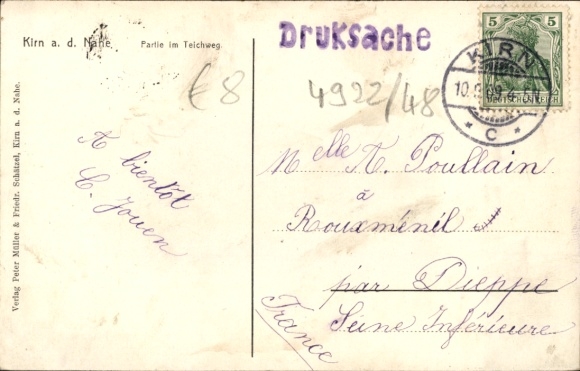 Kirn a. d. Nahe. Partie im Teichweg.
Druksache
5 5
DEUTSCHES REICH
KIRN
10.9.09. 4-5N
* C *
€8
4922/48
A bientôt
C. Jouen
Melle A. Poullain
à
Rouxménil
par Dieppe
Seine Inférieure
France
Verlag Peter Müller & Friedr. Schätzel, Kirn a. d. Nahe.